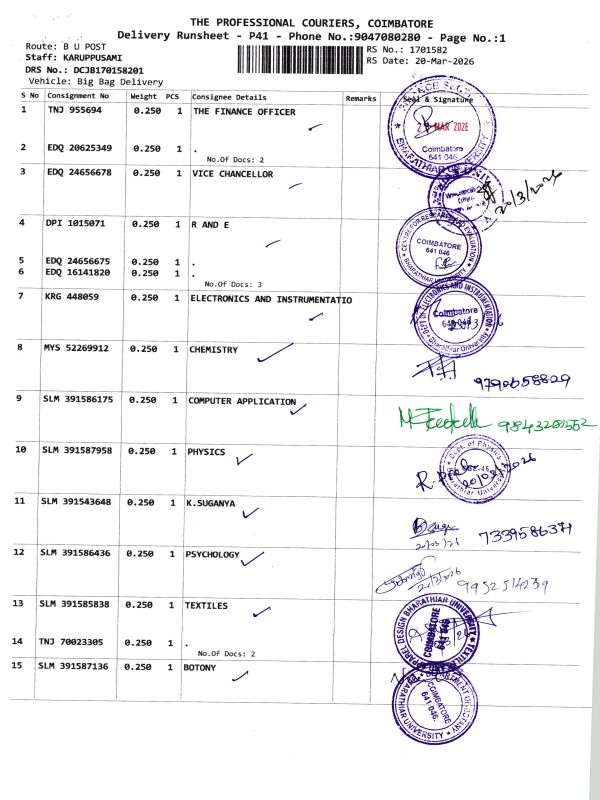 THE PROFESSIONAL COURIERS, COIMBATORE
Delivery Runsheet - P41 - Phone No.:9047080280 - Page No.:1
Route: B U POST
RS No.: 1701582
Staff: KARUPPUSAMI
RS Date: 20-Mar-2026
DRS No.: DCJB170158201
Vehicle: Big Bag Delivery
S No Consignment No Weight PCS Consignee Details Remarks Seal & Signature
1 TNJ 955694 0.250 1 THE FINANCE OFFICER
MAR 2026
Coimbatore
641 046
BHARATHIAR UNIVERSITY
2 EDQ 20625349 0.250 1 .
No.Of Docs: 2
3 EDQ 24656678 0.250 1 VICE CHANCELLOR
20/3/2026
4 DPI 1015071 0.250 1 R AND E
CENTRE FOR RESEARCH AND EVALUATION
COIMBATORE
641 046
BHARATHIAR UNIVERSITY
5 EDQ 24656675 0.250 1 .
6 EDQ 16141820 0.250 1 .
No.Of Docs: 3
7 KRG 448059 0.250 1 ELECTRONICS AND INSTRUMENTATIO
DEPT OF ELECTRONICS AND INSTRUMENTATION
Coimbatore
641 046
Bharathiar University
8 MYS 52269912 0.250 1 CHEMISTRY
9790658829
9 SLM 391586175 0.250 1 COMPUTER APPLICATION
9843200552
10 SLM 391587958 0.250 1 PHYSICS
Dept. of Physics
Bharathiar University
20/03/2026
11 SLM 391543648 0.250 1 K.SUGANYA
7339586371
12 SLM 391586436 0.250 1 PSYCHOLOGY
13 SLM 391585838 0.250 1 TEXTILES
APPAREL DESIGN BHARATHIAR UNIVERSITY
COIMBATORE
641 046
14 TNJ 70023305 0.250 1 .
No.Of Docs: 2
15 SLM 391587136 0.250 1 BOTONY
DEPARTMENT OF BOTANY
COIMBATORE
641 046.
BHARATHIAR UNIVERSITY